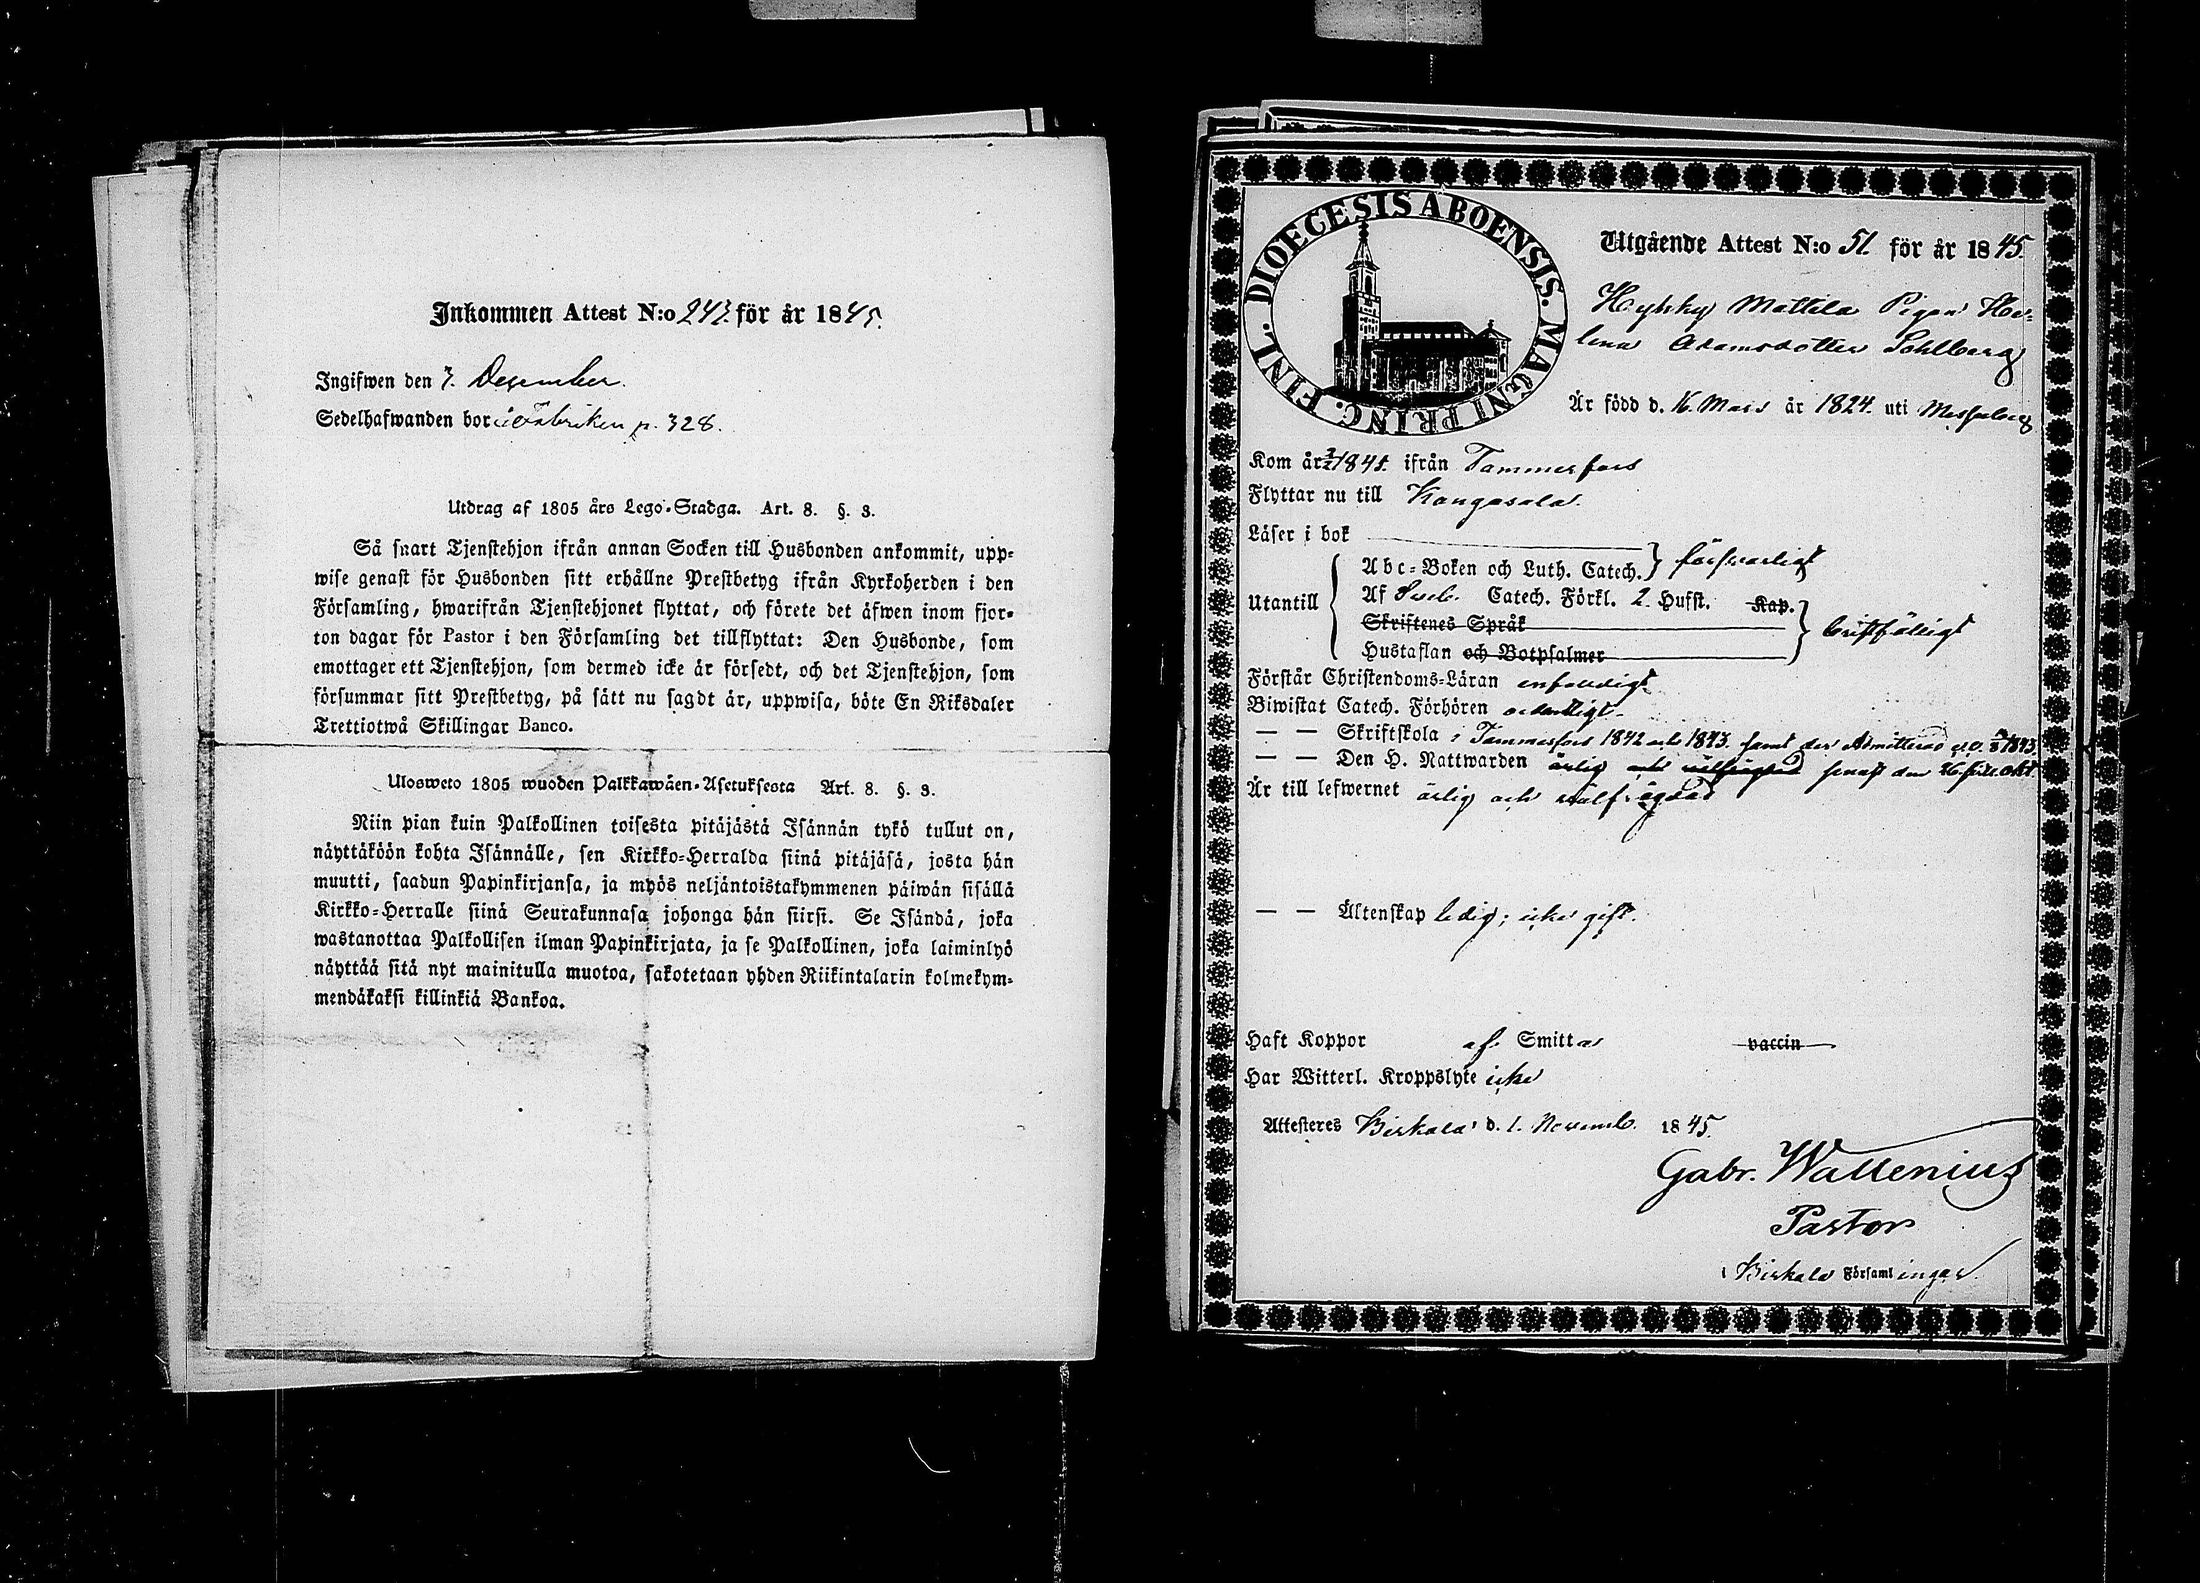 Inkommen Attest N:o 243. för år 1845.
Ingifwen den 7. December.
Sedelhafwanden bor i Fabriken p. 328.
Utdrag af 1805 års Lego-Stadga. Art. 8. §. 3.
Så snart Tjenstehjon ifrån annan Socken till Husbonden ankommit, upp-
wise genast för Husbonden sitt erhållne Prestbetyg ifrån Kyrkoherden i den
Församling, hwarifrån Tjenstehjonet flyttat, och förete det äfwen inom fjor-
ton dagar för Pastor i den Församling det tillflyttat: Den Husbonde, som
emottager ett Tjenstehjon, som dermed icke är försedt, och det Tjenstehjon, som
försummar sitt Prestbetyg, på sätt nu sagdt är, uppwisa, böte En Riksdaler
Trettiotwå Skillingar Banco.
Ulosweto 1805 wuoden Palkkawäen-Asetuksesta Art. 8. §. 3.
Niin pian kuin Palkollinen toisesta pitäjästä Isännän tykö tullut on,
näyttäköön kohta Isännälle, sen Kirkko-Herralda siinä pitäjäsä, josta hän
muutti, saadun Papinkirjansa, ja myös neljäntoistakymmenen päiwän sisällä
Kirkko-Herralle siinä Seurakunnasa johonga hän siirsi. Se Isändä, joka
wastanottaa Palkollisen ilman Papinkirjata, ja se Palkollinen, joka laiminlyö
näyttää sitä nyt mainitulla muotoa, sakotetaan yhden Riikintalarin kolmekym-
mendäkaksi killinkiä Bankoa.
DIOECESIS ABOENSIS. MAGNI PRINC. FINL.
Utgående Attest N:o 51. för år 1845.
Hyhky Mattila Pigan He-
lena Adamsdotter Sohlberg
Är född d. 16. Mars år 1824. uti Messuby
Kom år 1845. ifrån Tammerfors
Flyttar nu till Kangasala.
Läser i bok
Utantill
Abc-Boken och Luth. Catech. försvarligt
Af Sveb. Catech. Förkl. 2. Hufst. Kap.
Skriftenes Språk
Hustaflan och Botpsalmer
bristfälligt
Förstår Christendoms-Läran enfaldigt
Biwistat Catech. Förhören ordentligt.
— — Skriftskola i Tammerfors 1842 och 1843. samt der Admitterad 1843
— — Den H. Nattwarden ärlig och välfrägdad senast den 26 sistl. Okt.
Är till lefwernet ärlig och välfrägdad
— — Äktenskap ledig; icke gift.
Haft Koppor af Smitta vaccin
Har Witterl. Kroppslyte icke
Attesteres Birkala d. 1. Novemb. 1845.
Gabr. Wallenius
Pastor
i Birkala Församlingar.